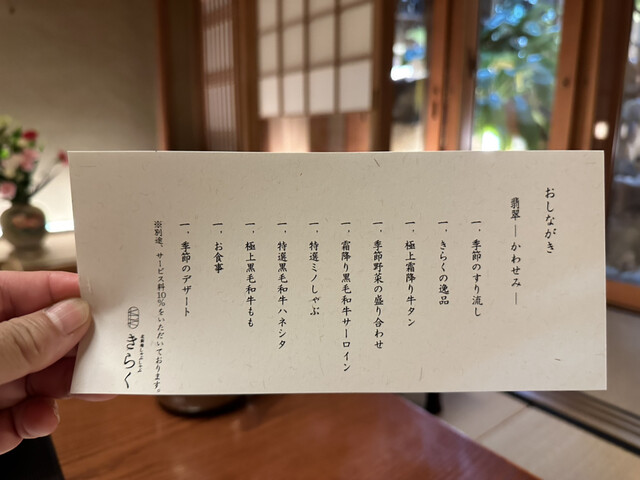 おしながき
翡翠 ― かわせみ ―
一、季節のすり流し
一、きらくの逸品
一、極上霜降り牛タン
一、季節野菜の盛り合わせ
一、霜降り黒毛和牛サーロイン
一、特選ミノしゃぶ
一、特選黒毛和牛ハネシタ
一、極上黒毛和牛もも
一、お食事
一、季節のデザート
※別途、サービス料10%をいただいております。
きらく